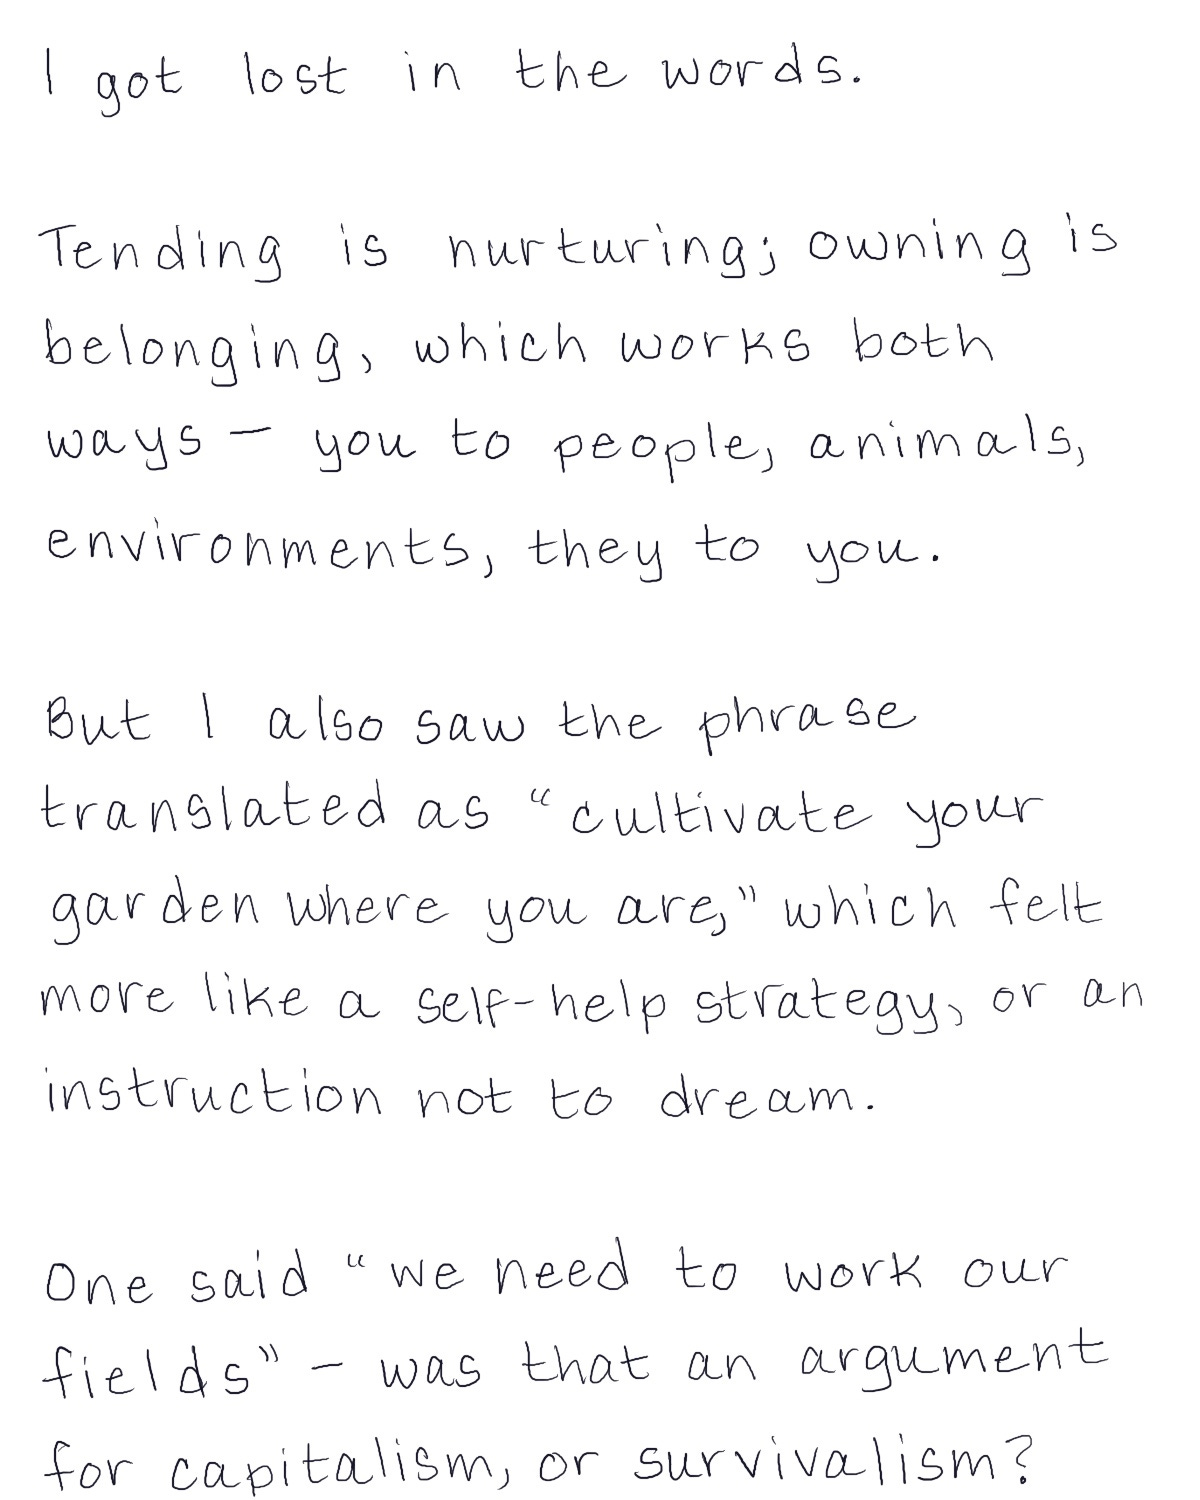 I got lost in the words.
Tending is nurturing; owning is
belonging, which works both
ways – you to people, animals,
environments, they to you.
But I also saw the phrase
translated as “cultivate your
garden where you are,” which felt
more like a self-help strategy, or an
instruction not to dream.
One said “we need to work our
fields” – was that an argument
for capitalism, or survivalism?